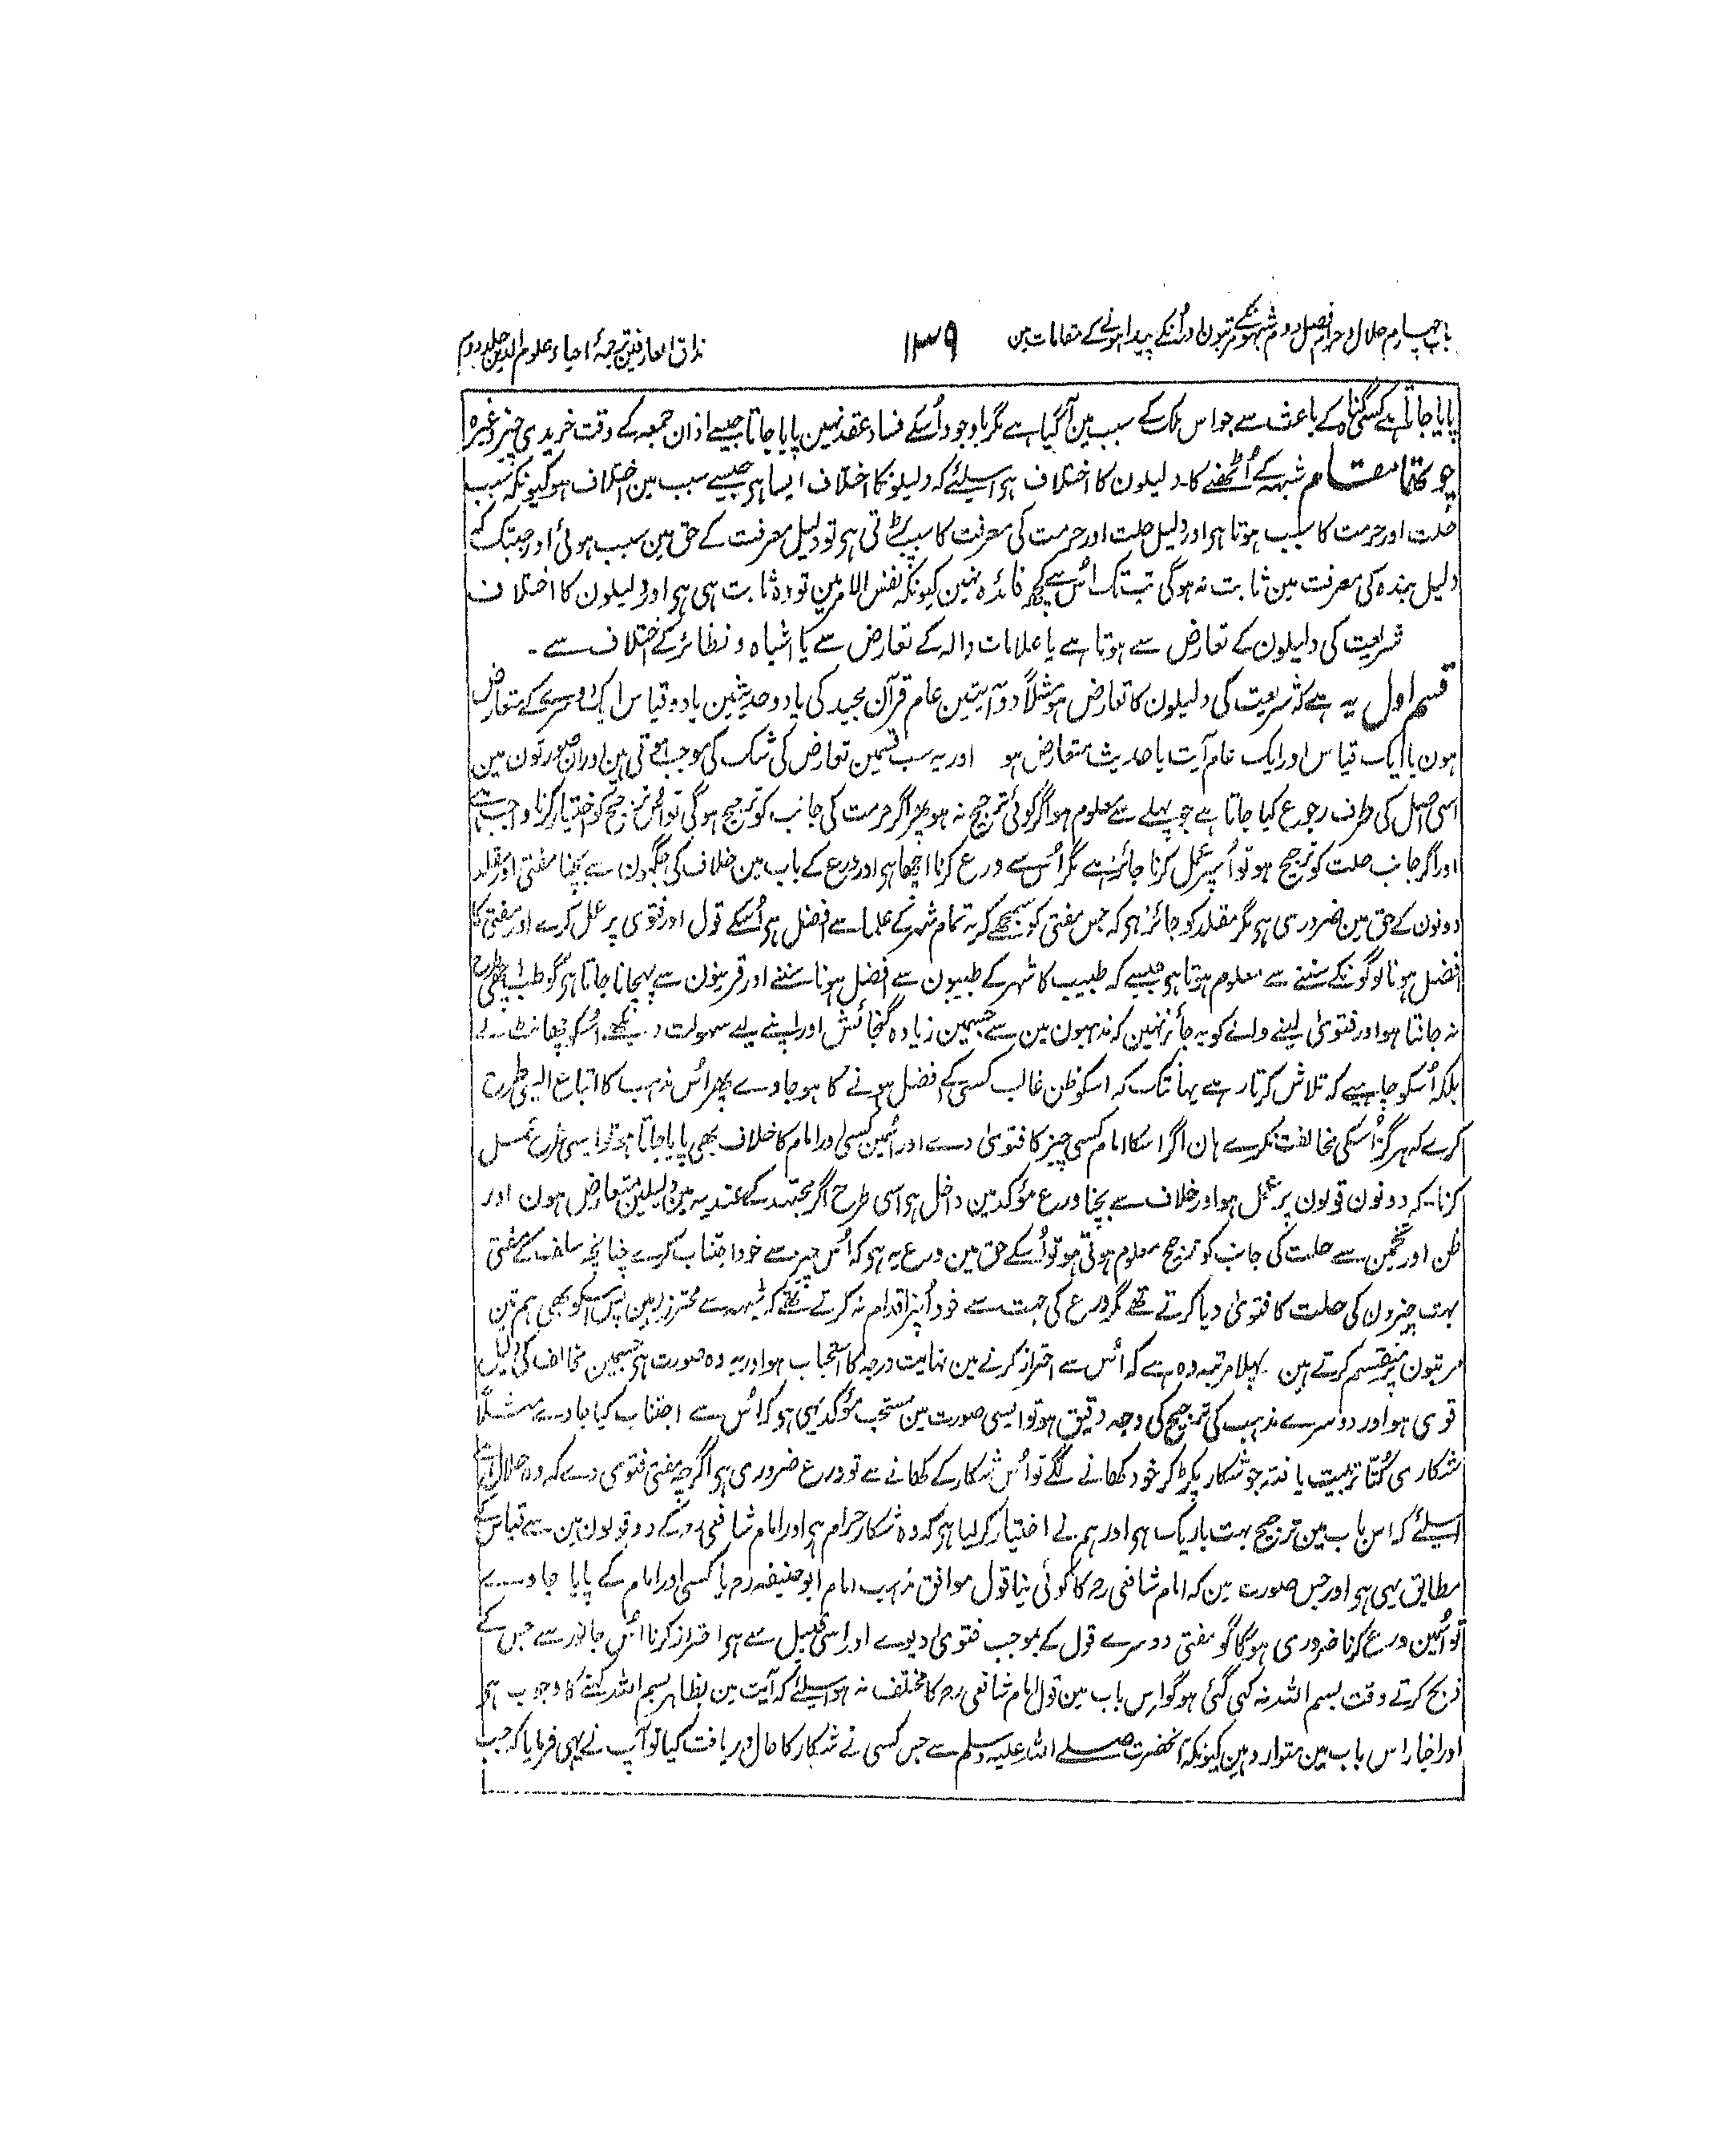 باب چہارم حلال و حرام فصل دوم شبہونکے مرتبون اور اُنکے پیدا ہونے کے مقامات مین
۱۳۹
مذاق العارفین ترجمۂ احیاء علوم الدین جلد دوم
پایا جاتا ہے کسی گناہ کے باعث سے جو اس ملک کے سبب مین آگیا ہے مگر باوجود اُسکے فساد عقد نہین پایا جاتا جیسے اذان جمعہ کے وقت خریدی چیز وغیرہ
چوتھا مقام شبہہ کے اُٹھنے کا۔ دلیلون کا اختلاف ہو اسیلئے کہ دلیلونکا اختلاف ایسا ہی جیسے سبب مین اختلاف ہو کیونکہ سبب
حلت اور حرمت کا سبب ہوتا ہو اور دلیل حلت اور حرمت کی معرفت کا سبب پڑتی ہو تو دلیل معرفت کے حق مین سبب ہوئی اور جبتک کہ
دلیل بندہ کی معرفت مین ثابت نہوگی تب تک اُس سے کچھ فائدہ نہین کیونکہ نفس الامر مین تو وہ ثابت ہی ہو اور دلیلون کا اختلاف
شریعت کی دلیلون کے تعارض سے ہوتا ہے یا علامات دالہ کے تعارض سے یا اشباہ و نظائر کے اختلاف سے ۔
قسم اول یہ ہے کہ شریعت کی دلیلون کا تعارض ہو مثلاً دو آیتین عام قرآن مجید کی یا دو حدیثین یا دو قیاس ایک دوسرے کے متعارض
ہون یا ایک قیاس اور ایک عام آیت یا حدیث متعارض ہو اور یہ سب قسمین تعارض کی شک کی موجب ہوتی ہین اور ان صورتون مین
اسی اصل کی طرف رجوع کیا جاتا ہے جو پہلے سے معلوم ہو اگر کوئی ترجیح نہ ہو پھر اگر حرمت کی جانب کو ترجیح ہوگی تو اُس ترجیح کو اختیار کرنا واجب ہے
اور اگر جانب حلت کو ترجیح ہو تو اُسپر عمل کرنا جائز ہے مگر اُس سے ورع کرنا اچھا ہو اور ورع کے باب مین خلاف کی جگہون سے بچنا مفتی اور مقلد
دونون کے حق مین ضروری ہو مگر مقلد کو جائز ہو کہ جس مفتی کو سمجھے کہ یہ تمام شہر کے علما سے افضل ہو اُسکے قول اور فتوی پر عمل کرے اور مفتی کا
افضل ہونا لوگونکے سننے سے معلوم ہوتا ہو جیسے کہ طبیب کا شہر کے طبیبون سے افضل ہونا سننے اور قرینون سے پہچانا جاتا ہو گو طب اچھی طرح
نہ جانتا ہو اور فتویٰ لینے والے کو یہ جائز نہین کہ مذہبون مین سے جسمین زیادہ گنجائش اور اپنے لیے سہولت دیکھے اُسکو چھانٹ لے
بلکہ اُسکو چاہیے کہ تلاش کرتا رہے یہانتک کہ اسکو ظن غالب کسی کے افضل ہونے کا ہو جاوے پھر اُس مذہب کا اتباع ایسی طرح
کرے کہ ہرگز اُسکی مخالفت نکرے ہان اگر اسکا امام کسی چیز کا فتویٰ دے اور اُسمین کسی اور امام کا خلاف بھی پایا جاتا ہو تو ایسی طرح عمل
کرنا۔ کہ دونون قولون پر عمل ہو اور خلاف سے بچنا ورع مؤکد مین داخل ہو اسی طرح اگر مجتہد کے عندیہ مین دلیلین متعارض ہون اور
ظن اور تخمین سے حلت کی جانب کو ترجیح معلوم ہوتی ہو تو اُسکے حق مین ورع یہ ہو کہ اُس چیز سے خود اجتناب کرے چنانچہ سلف کے مفتی
بہت چیزون کی حلت کا فتویٰ دیا کرتے تھے مگر ورع کی جہت سے خود اُنپر اقدام نہ کرتے تھے کہ شبہہ سے محترز رہین پس اسکو بھی ہم تین
مرتبون پر منقسم کرتے ہین۔ پہلا مرتبہ وہ ہے کہ اُس سے احتراز کرنے مین نہایت درجہ کا استحباب ہو اور یہ وہ صورت ہی جسمین مخالف کی دلیل
قوی ہو اور دوسرے مذہب کی ترجیح کی وجہ دقیق ہو تو ایسی صورت مین مستحب مؤکد یہی ہو کہ اُس سے اجتناب کیا جاوے مثلاً
شکاری کُتا تربیت یافتہ جو شکار پکڑ کر خود کھانے لگے تو اُس شکار کے کھانے سے تو ورع ضروری ہو اگرچہ مفتی فتوی دے کہ وہ حلال ہے
اسیلئے کہ اس باب مین ترجیح بہت باریک ہو اور ہم نے اختیار کر لیا ہو کہ وہ شکار حرام ہو اور امام شافعی رہ کے دو قولون مین سے قیاس کے
مطابق یہی ہو اور جس صورت مین کہ امام شافعی رہ کا کوئی نیا قول موافق مذہب امام ابو حنیفہ رہ یا کسی اور امام کے پایا جاوے
تو اُسمین ورع کرنا ضروری ہوگا گو مفتی دوسرے قول کے بموجب فتویٰ دیوے اور اسی قبیل سے ہو احتراز کرنا اُس جانور سے جس کے
ذبح کرتے وقت بسم اللہ نہ کہی گئی ہو گو اِس باب مین قول امام شافعی رہ کا مختلف نہ ہو اسیلئے کہ آیت مین بظاہر بسم اللہ کہنے کا وجوب ہو
اور اخبار اس باب مین متوارد ہین کیونکہ آنحضرت صلے اللہ علیہ وسلم سے جس کسی نے شکار کا حال دریافت کیا تو آپ نے یہی فرمایا کہ جب